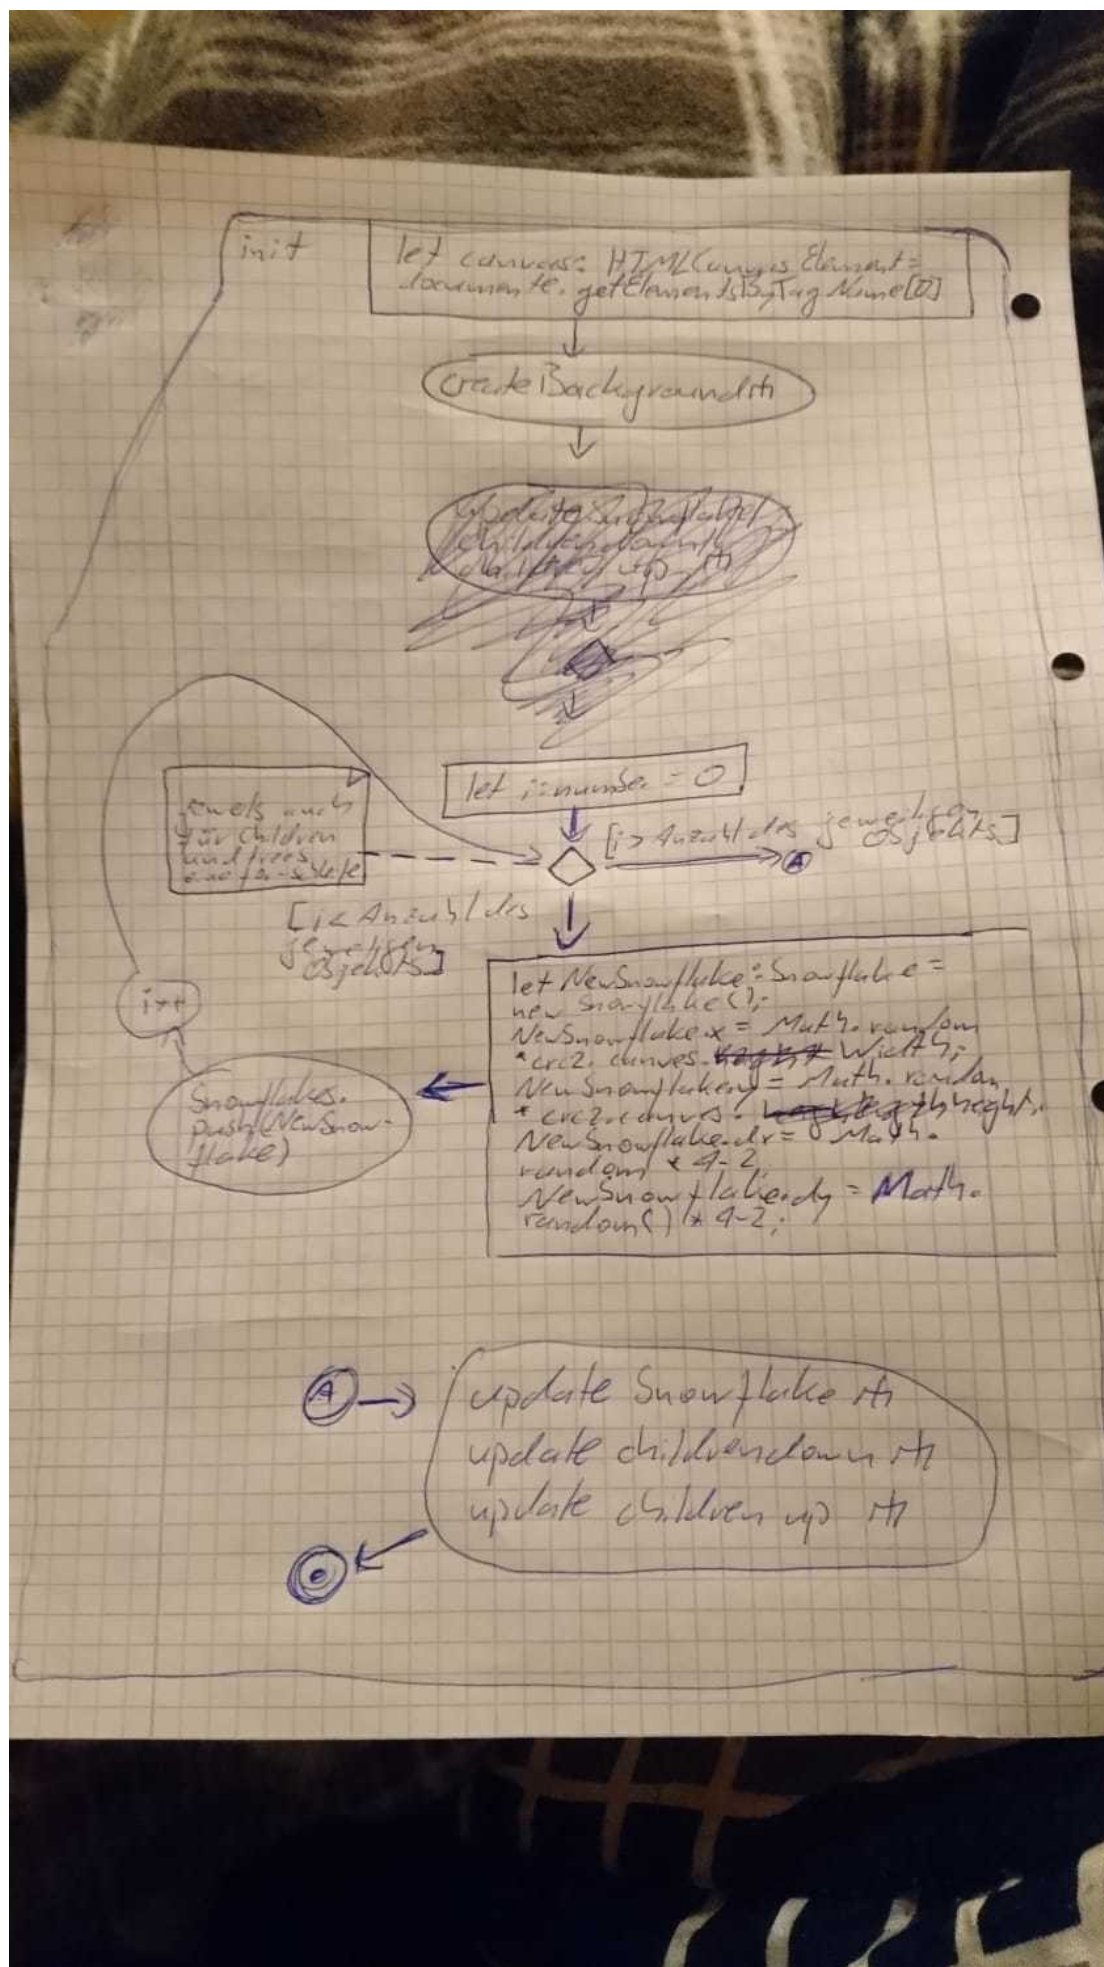 init
let canvas: HTMLCanvasElement =
documente.getElementsByTagName[0]
createBackground
let i:number = 0
[i > Anzahl des jeweiligen
Objekts]
A
jeweils auch
für Children
und trees
eine for-schleife
[i < Anzahl des
jeweiligen
Objekts]
let NewSnowflake: Snowflake =
new Snowflake();
NewSnowflake.x = Math.random
*crc2.canvas. Width;
NewSnowflake.y = Math.random
* crc2.canvas. heght.
NewSnowflake.dx = Math.
random * 4-2;
NewSnowflake.dy = Math.
random() * 4-2;
i++
Snowflakes.
push(NewSnow-
flake)
A
update Snowflake
update childrendown
update children up